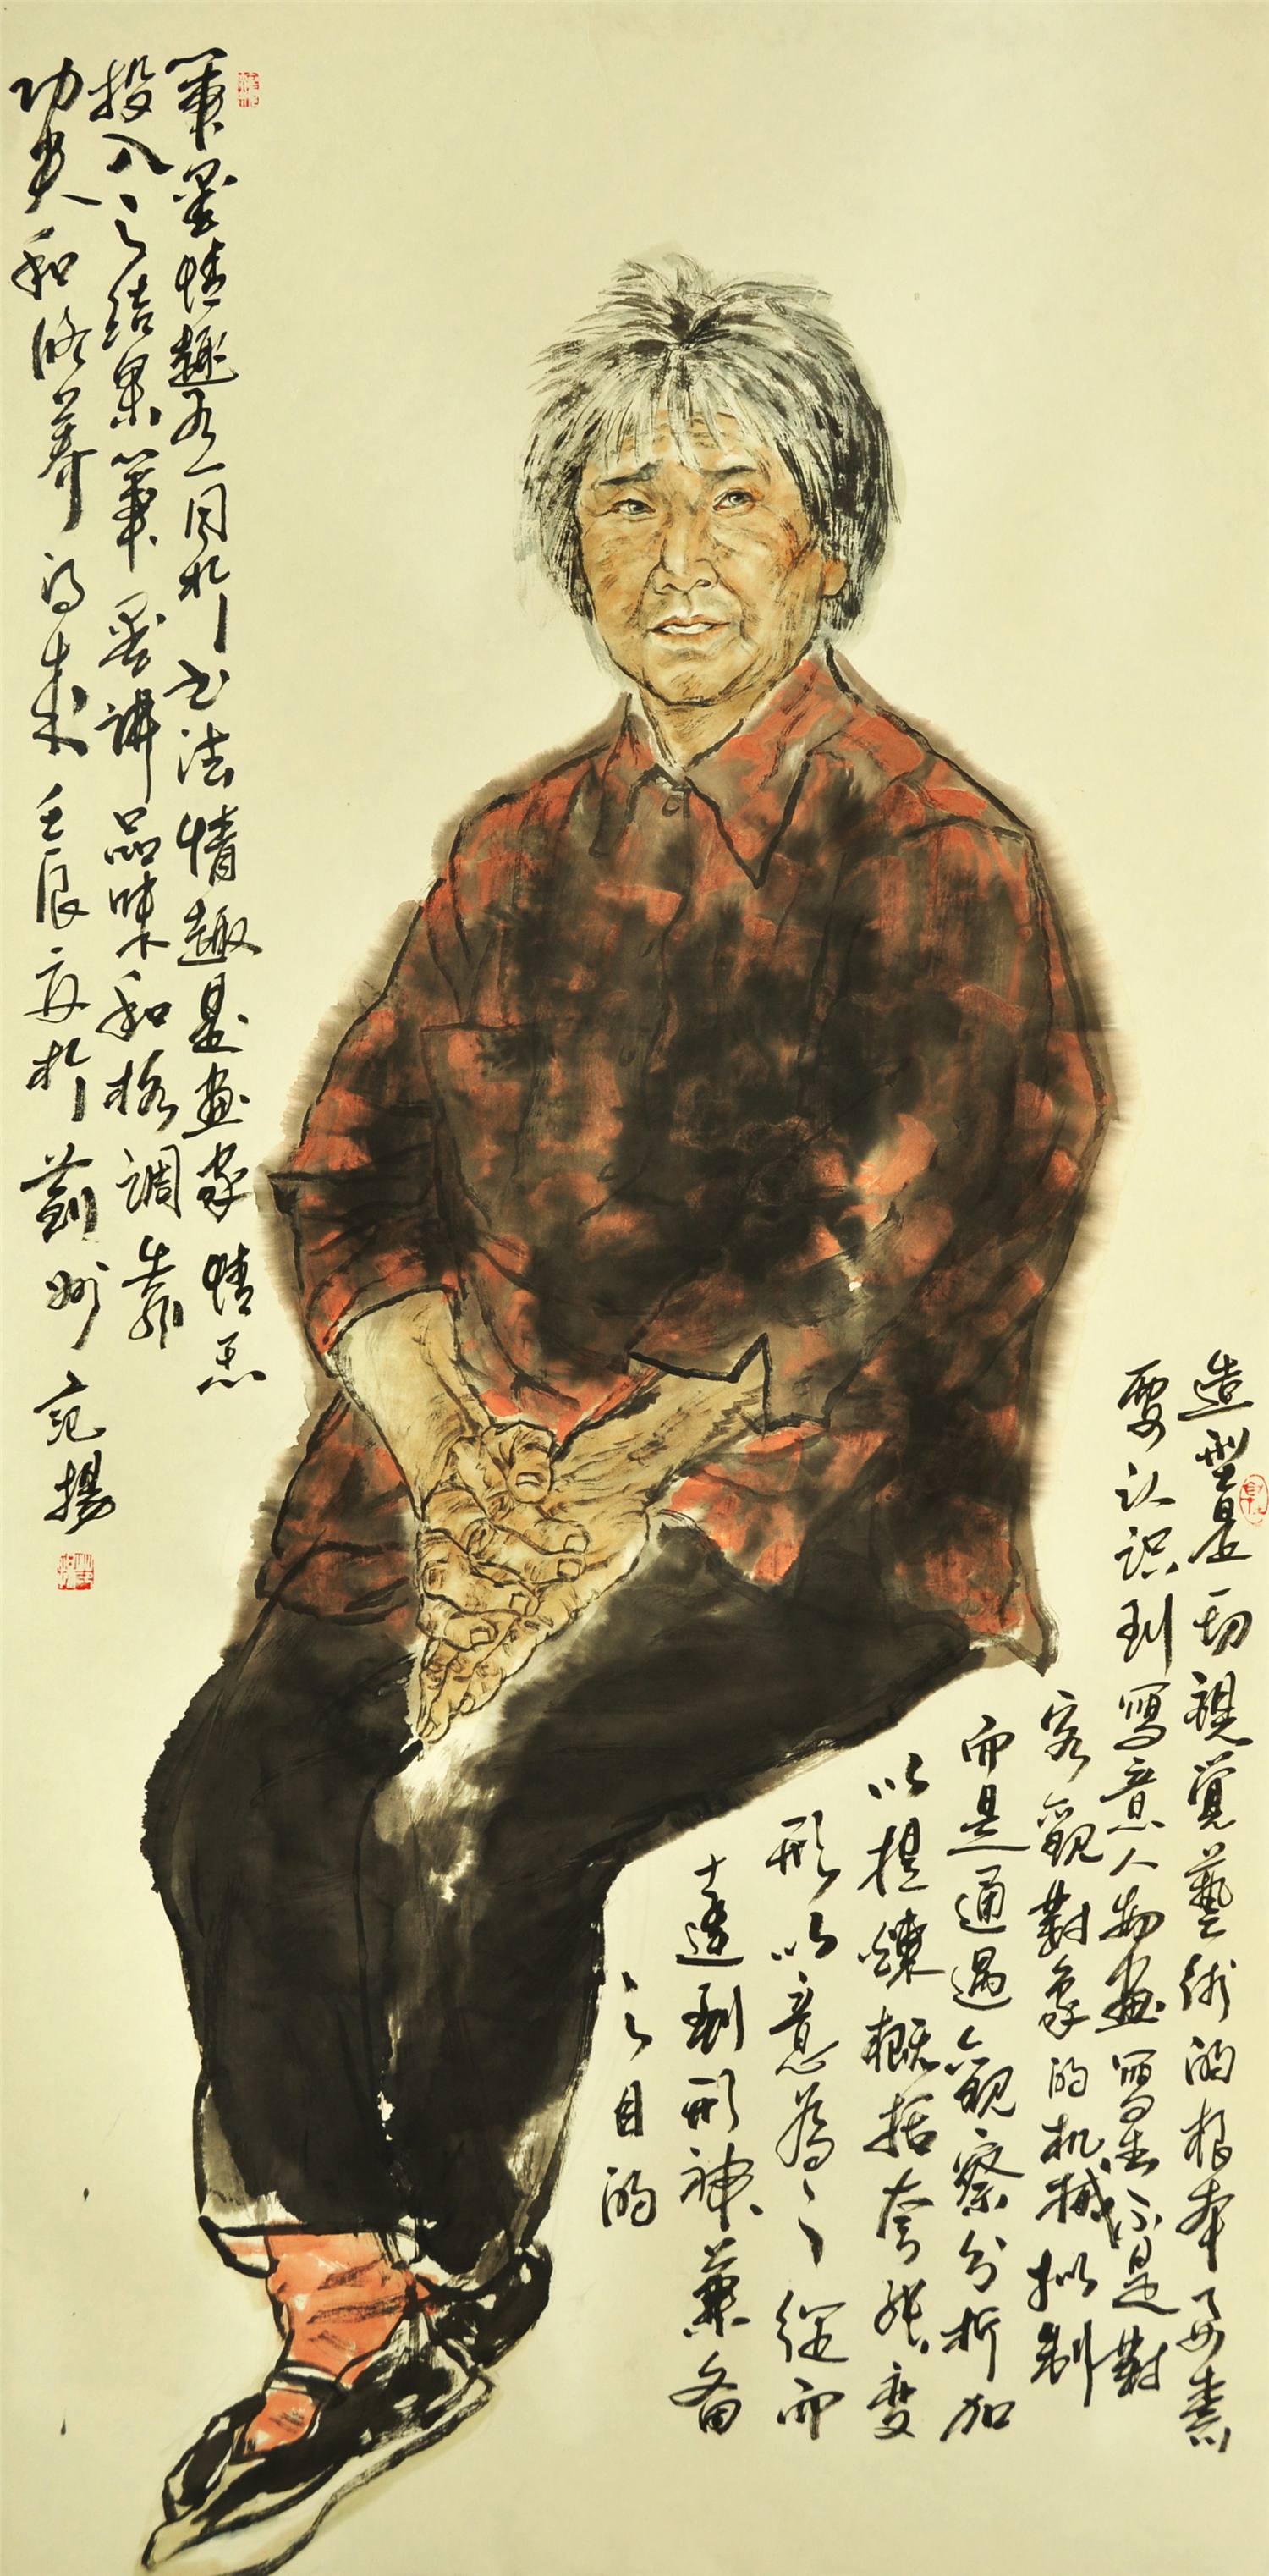 造型是一切視覺藝術的根本要素
要认识到寫意人物畫寫生不是對
客觀對象的机械拟制
而是通過觀察分析加
以提煉概括夸张變
形以意為之從而
達到形神兼备
之目的
筆墨情趣不同於书法情趣是畫家情
投入之结果筆墨讲品味和格調靠
功夫和修养得来壬辰於蓟州范揚